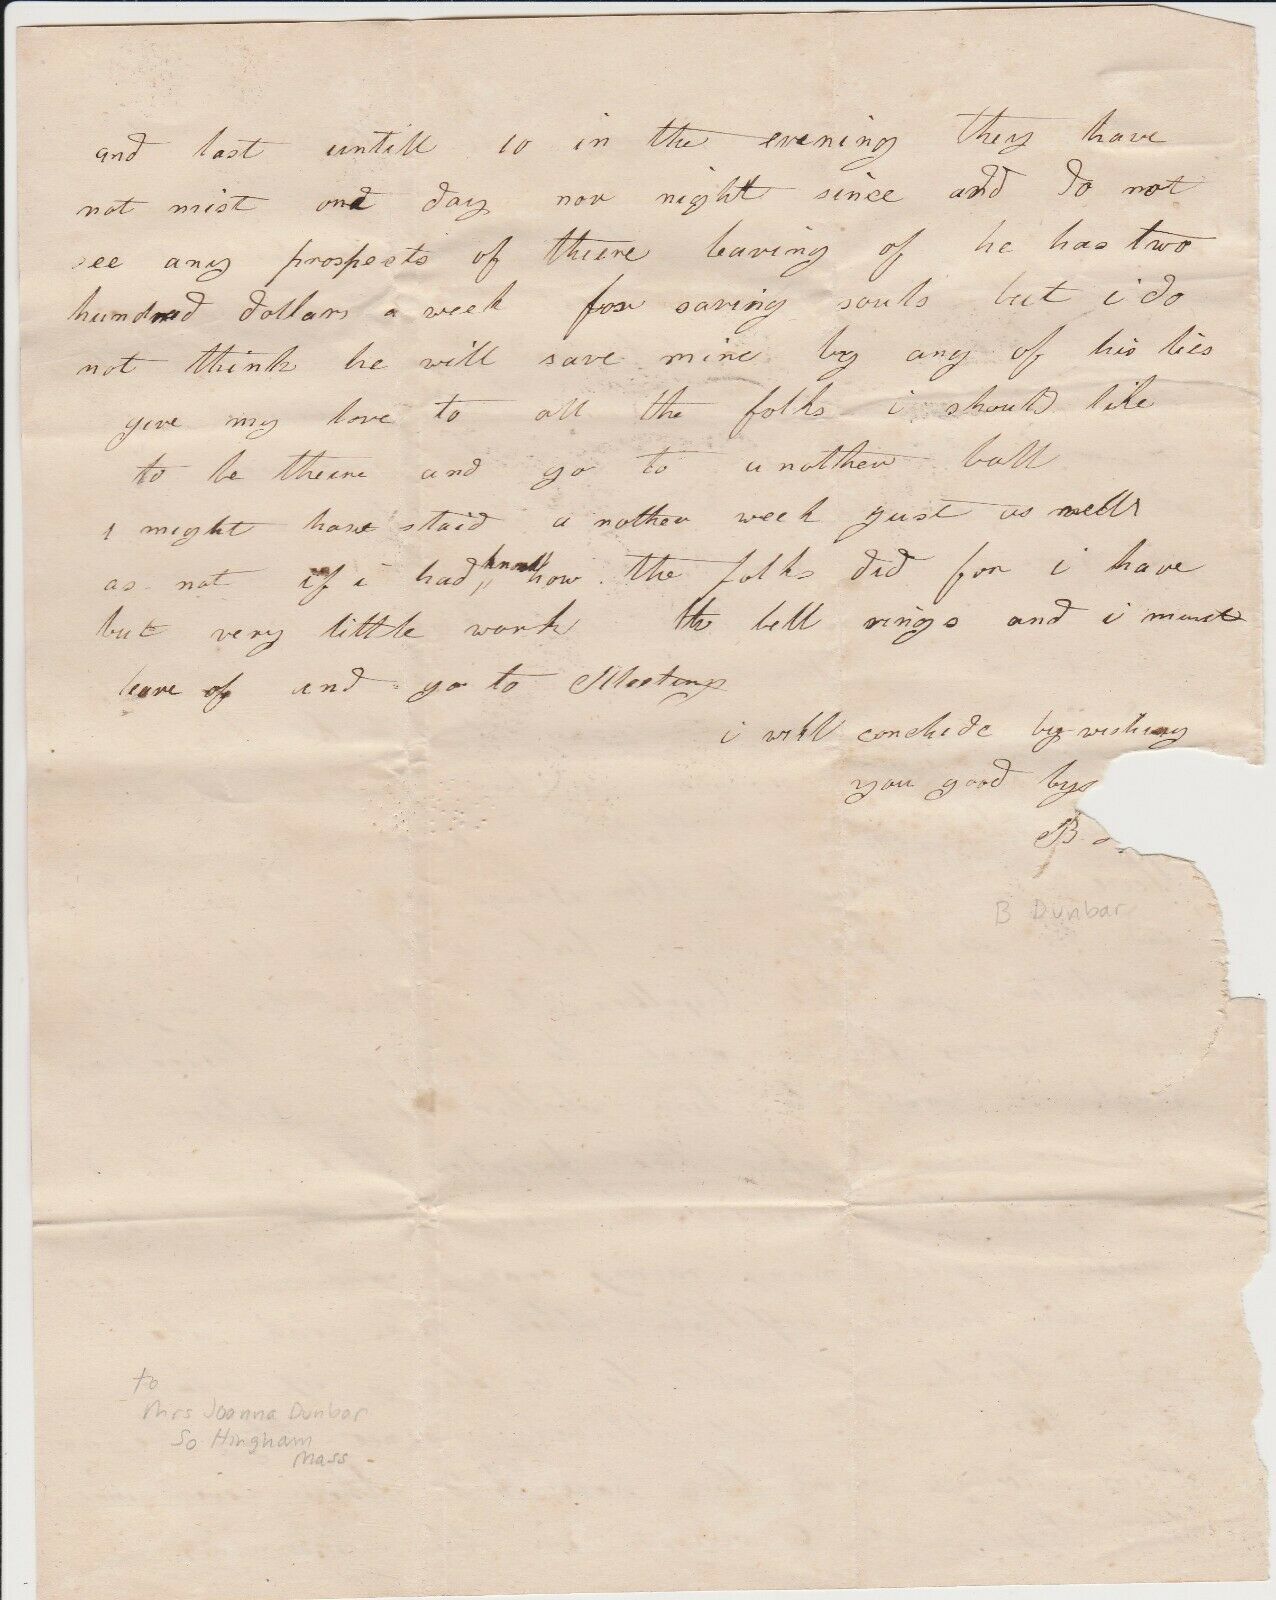 and last untill 10 in the evening they have
not mist one day nor night since and do not
see any prospects of theire leaving of he has two
hundred dollars a week for saving souls but i do
not think he will save mine by any of his lies
give my love to all the folks i should like
to be theire and go to a nother ball
i might have staid a nother week just as well
as not if i had know how the folks did for i have
but very little work the bell rings and i must
leave of and go to Meeting
i will conclude by wishing
you good bye
B
B Dunbar
to
Mrs Joanna Dunbar
So Hingham
Mass